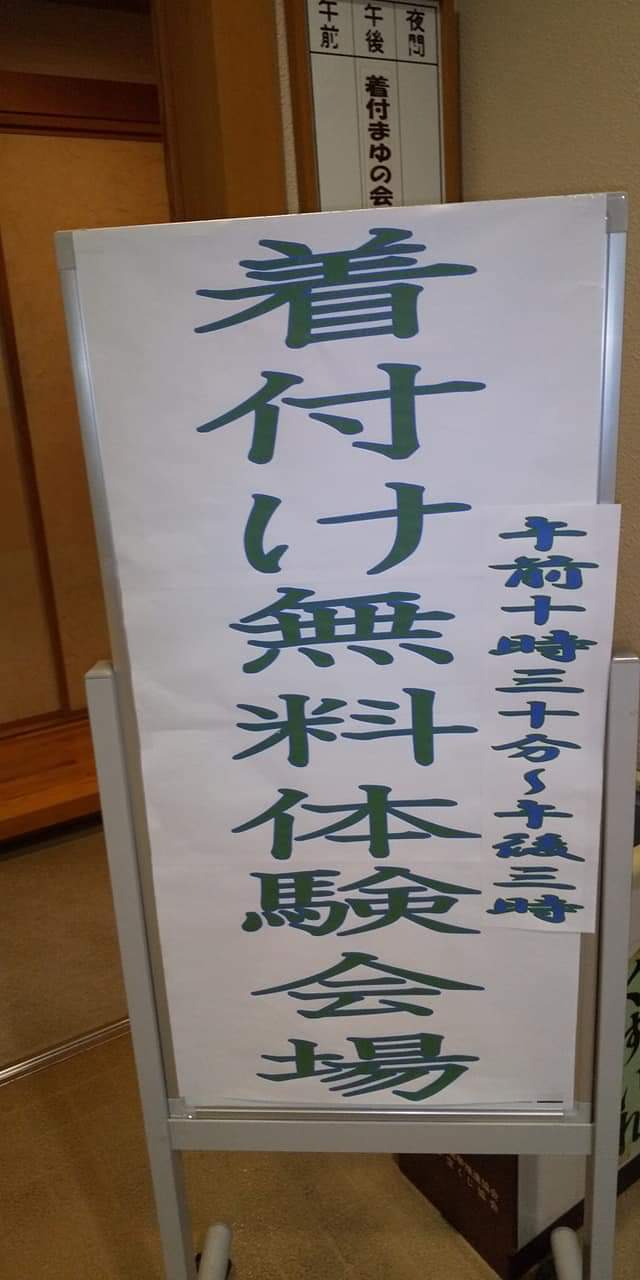 夜間
午後
午前
着付まゆの会
着付け無料体験会場
午前十時三十分～午後三時